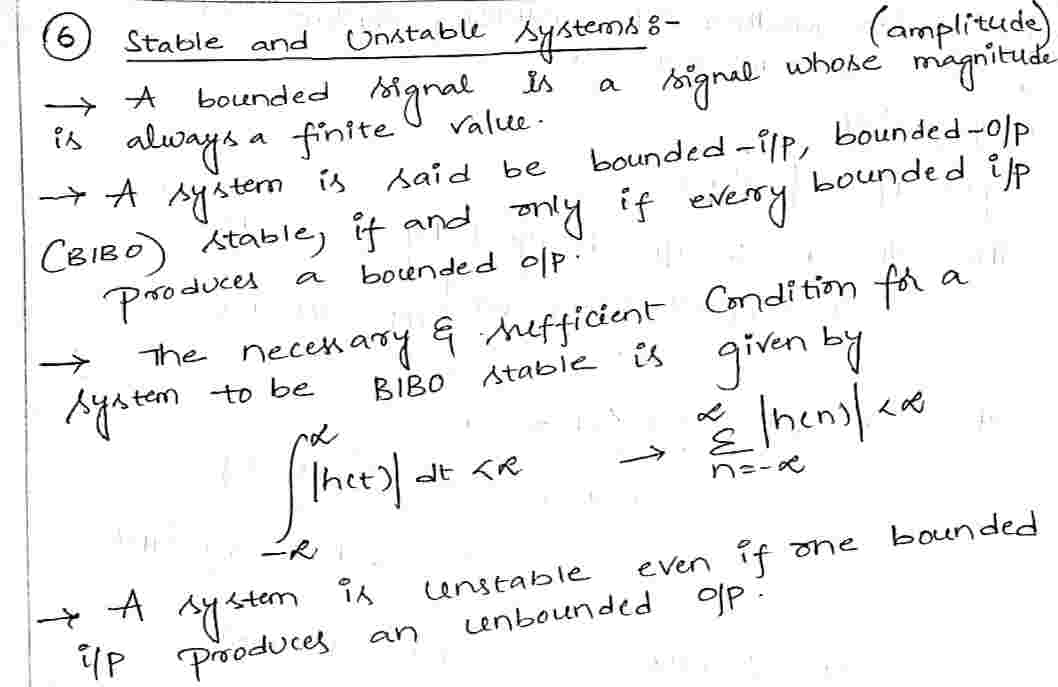 ⑥ Stable and Unstable systems :-
(amplitude)
→ A bounded signal is a signal whose magnitude
is always a finite value.
→ A system is said be bounded-i/p, bounded-o/p
(BIBO) stable, if and only if every bounded i/p
produces a bounded o/p.
→ The necessary & sufficient Condition for a
system to be BIBO stable is given by
∫_{-∞}^{∞} |h(t)| dt < ∞ → ∑_{n=-∞}^{∞} |h(n)| < ∞
→ A system is unstable even if one bounded
i/p produces an unbounded o/p.